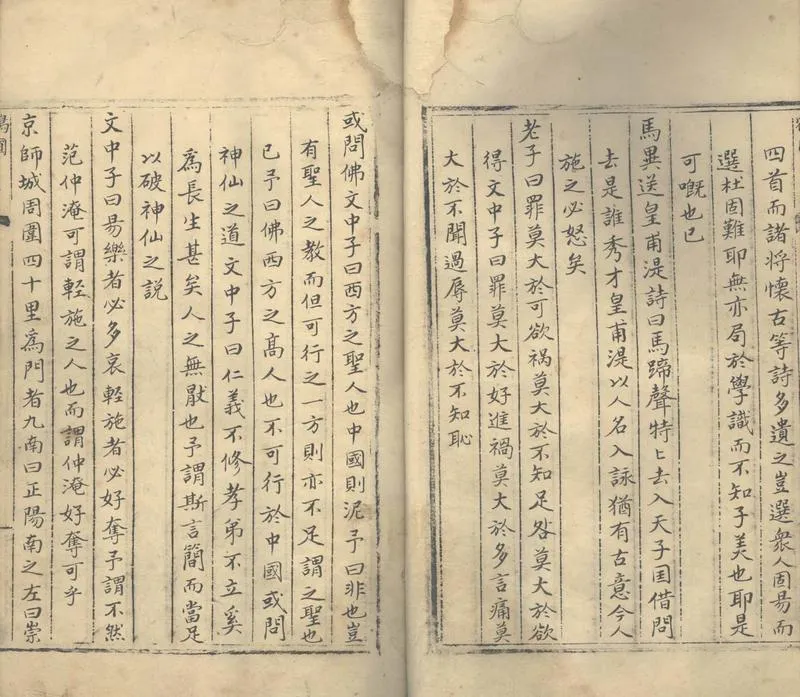 四首而諸将懷古等詩多遺之豈選衆人固易而
選杜固難耶無亦局於學識而不知子美也耶是
可嘅也已
馬異送皇甫湜詩曰馬蹄聲特〻去入天子国借問
去是誰秀才皇甫湜以人名入詠猶有古意今人
施之必怒矣
老子曰罪莫大於可欲禍莫大於不知足咎莫大於欲
得文中子曰罪莫大於好進禍莫大於多言痛莫
大於不聞過辱莫大於不知恥
或問佛文中子曰西方之聖人也中國則泥予曰非也豈
有聖人之教而但可行之一方則亦不足謂之聖也
已予曰佛西方之髙人也不可行於中國或問
神仙之道文中子曰仁義不修孝弟不立奚
爲長生甚矣人之無猒也予謂斯言簡而當足
以破神仙之説
文中子曰易樂者必多哀輕施者必好奪予謂不然
范仲淹可謂輕施之人也而謂仲淹好奪可乎
京師城周圍四十里爲門者九南曰正陽南之左曰崇